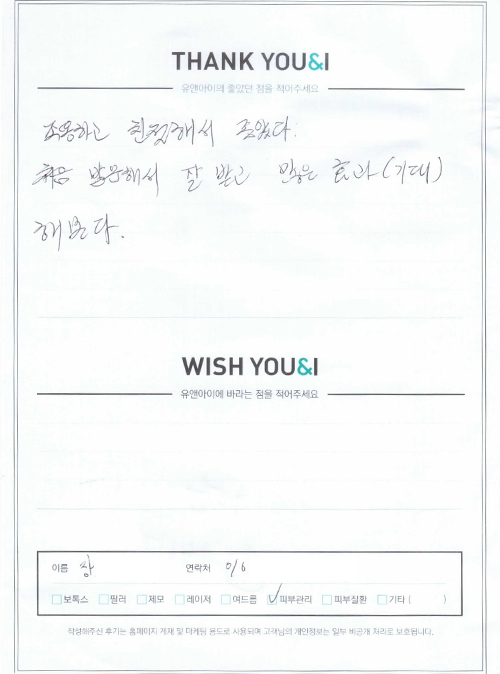 THANK YOU&I
유앤아이의 좋았던 점을 적어주세요
조용하고 친절해서 좋았다.
처음 방문해서 잘 받고 많은 효과(기대)
해본다.
WISH YOU&I
유앤아이에 바라는 점을 적어주세요
이름 장 연락처 010
보톡스 필러 제모 레이저 여드름 피부관리 피부질환 기타 ( )
작성해주신 후기는 홈페이지 게재 및 마케팅 용도로 사용되며 고객님의 개인정보는 일부 비공개 처리로 보호됩니다.